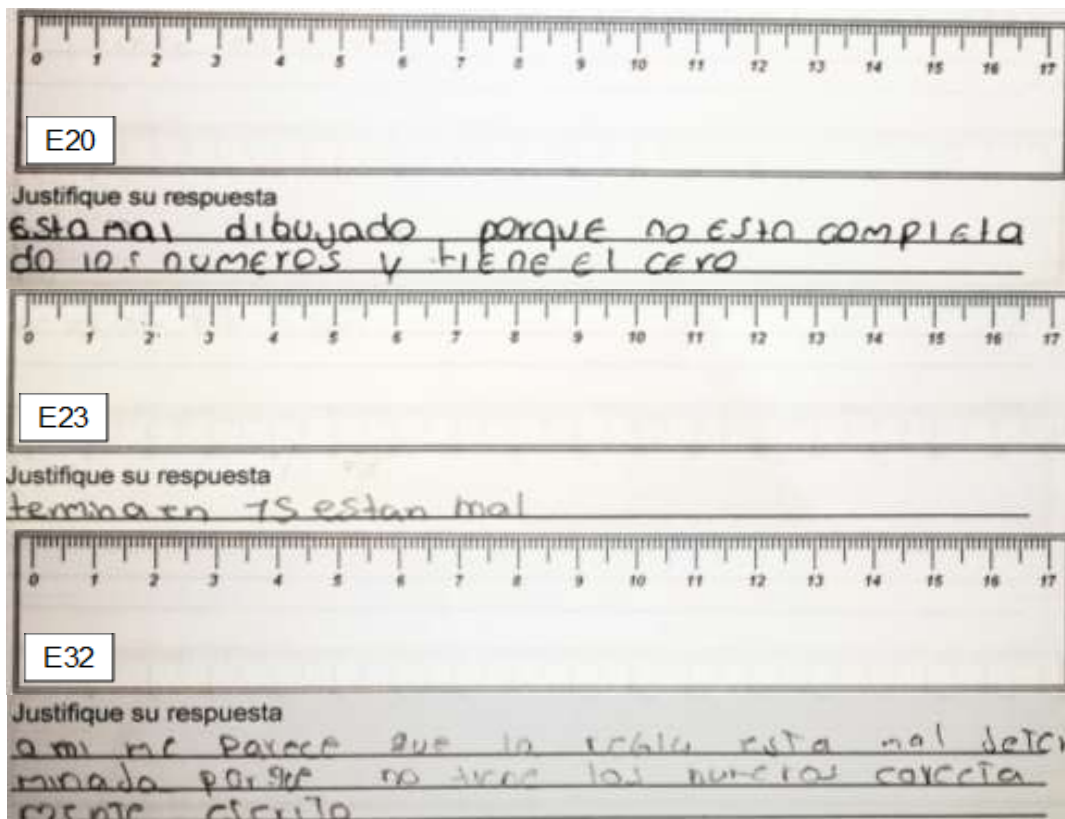 0 1 2 3 4 5 6 7 8 9 10 11 12 13 14 15 16 17
E20
Justifique su respuesta
Esta mal dibujado porque no esta completa
do los numeros y tiene el cero
0 1 2 3 4 5 6 7 8 9 10 11 12 13 14 15 16 17
E23
Justifique su respuesta
termina en 15 estan mal
0 1 2 3 4 5 6 7 8 9 10 11 12 13 14 15 16 17
E32
Justifique su respuesta
a mi me parece que la regla esta mal deter
minada porque no tiene los numeros correcta
mente escrito